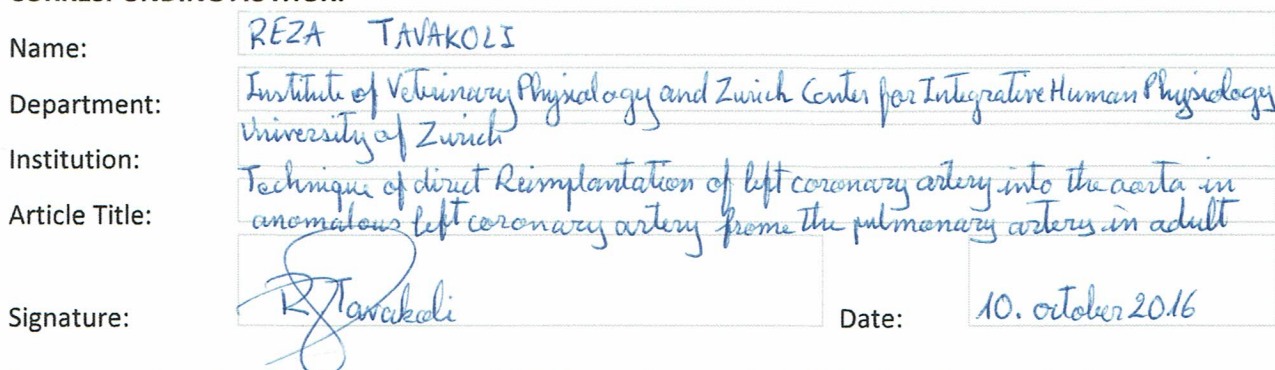 Name: REZA TAVAKOLI
Department: Institute of Veterinary Physiology and Zurich Center for Integrative Human Physiology
University of Zurich
Institution:
Technique of direct Reimplantation of left coronary artery into the aorta in
Article Title:
anomalous left coronary artery frome the pulmonary artery in adult
Signature: R Tavakoli Date: 10. october 2016